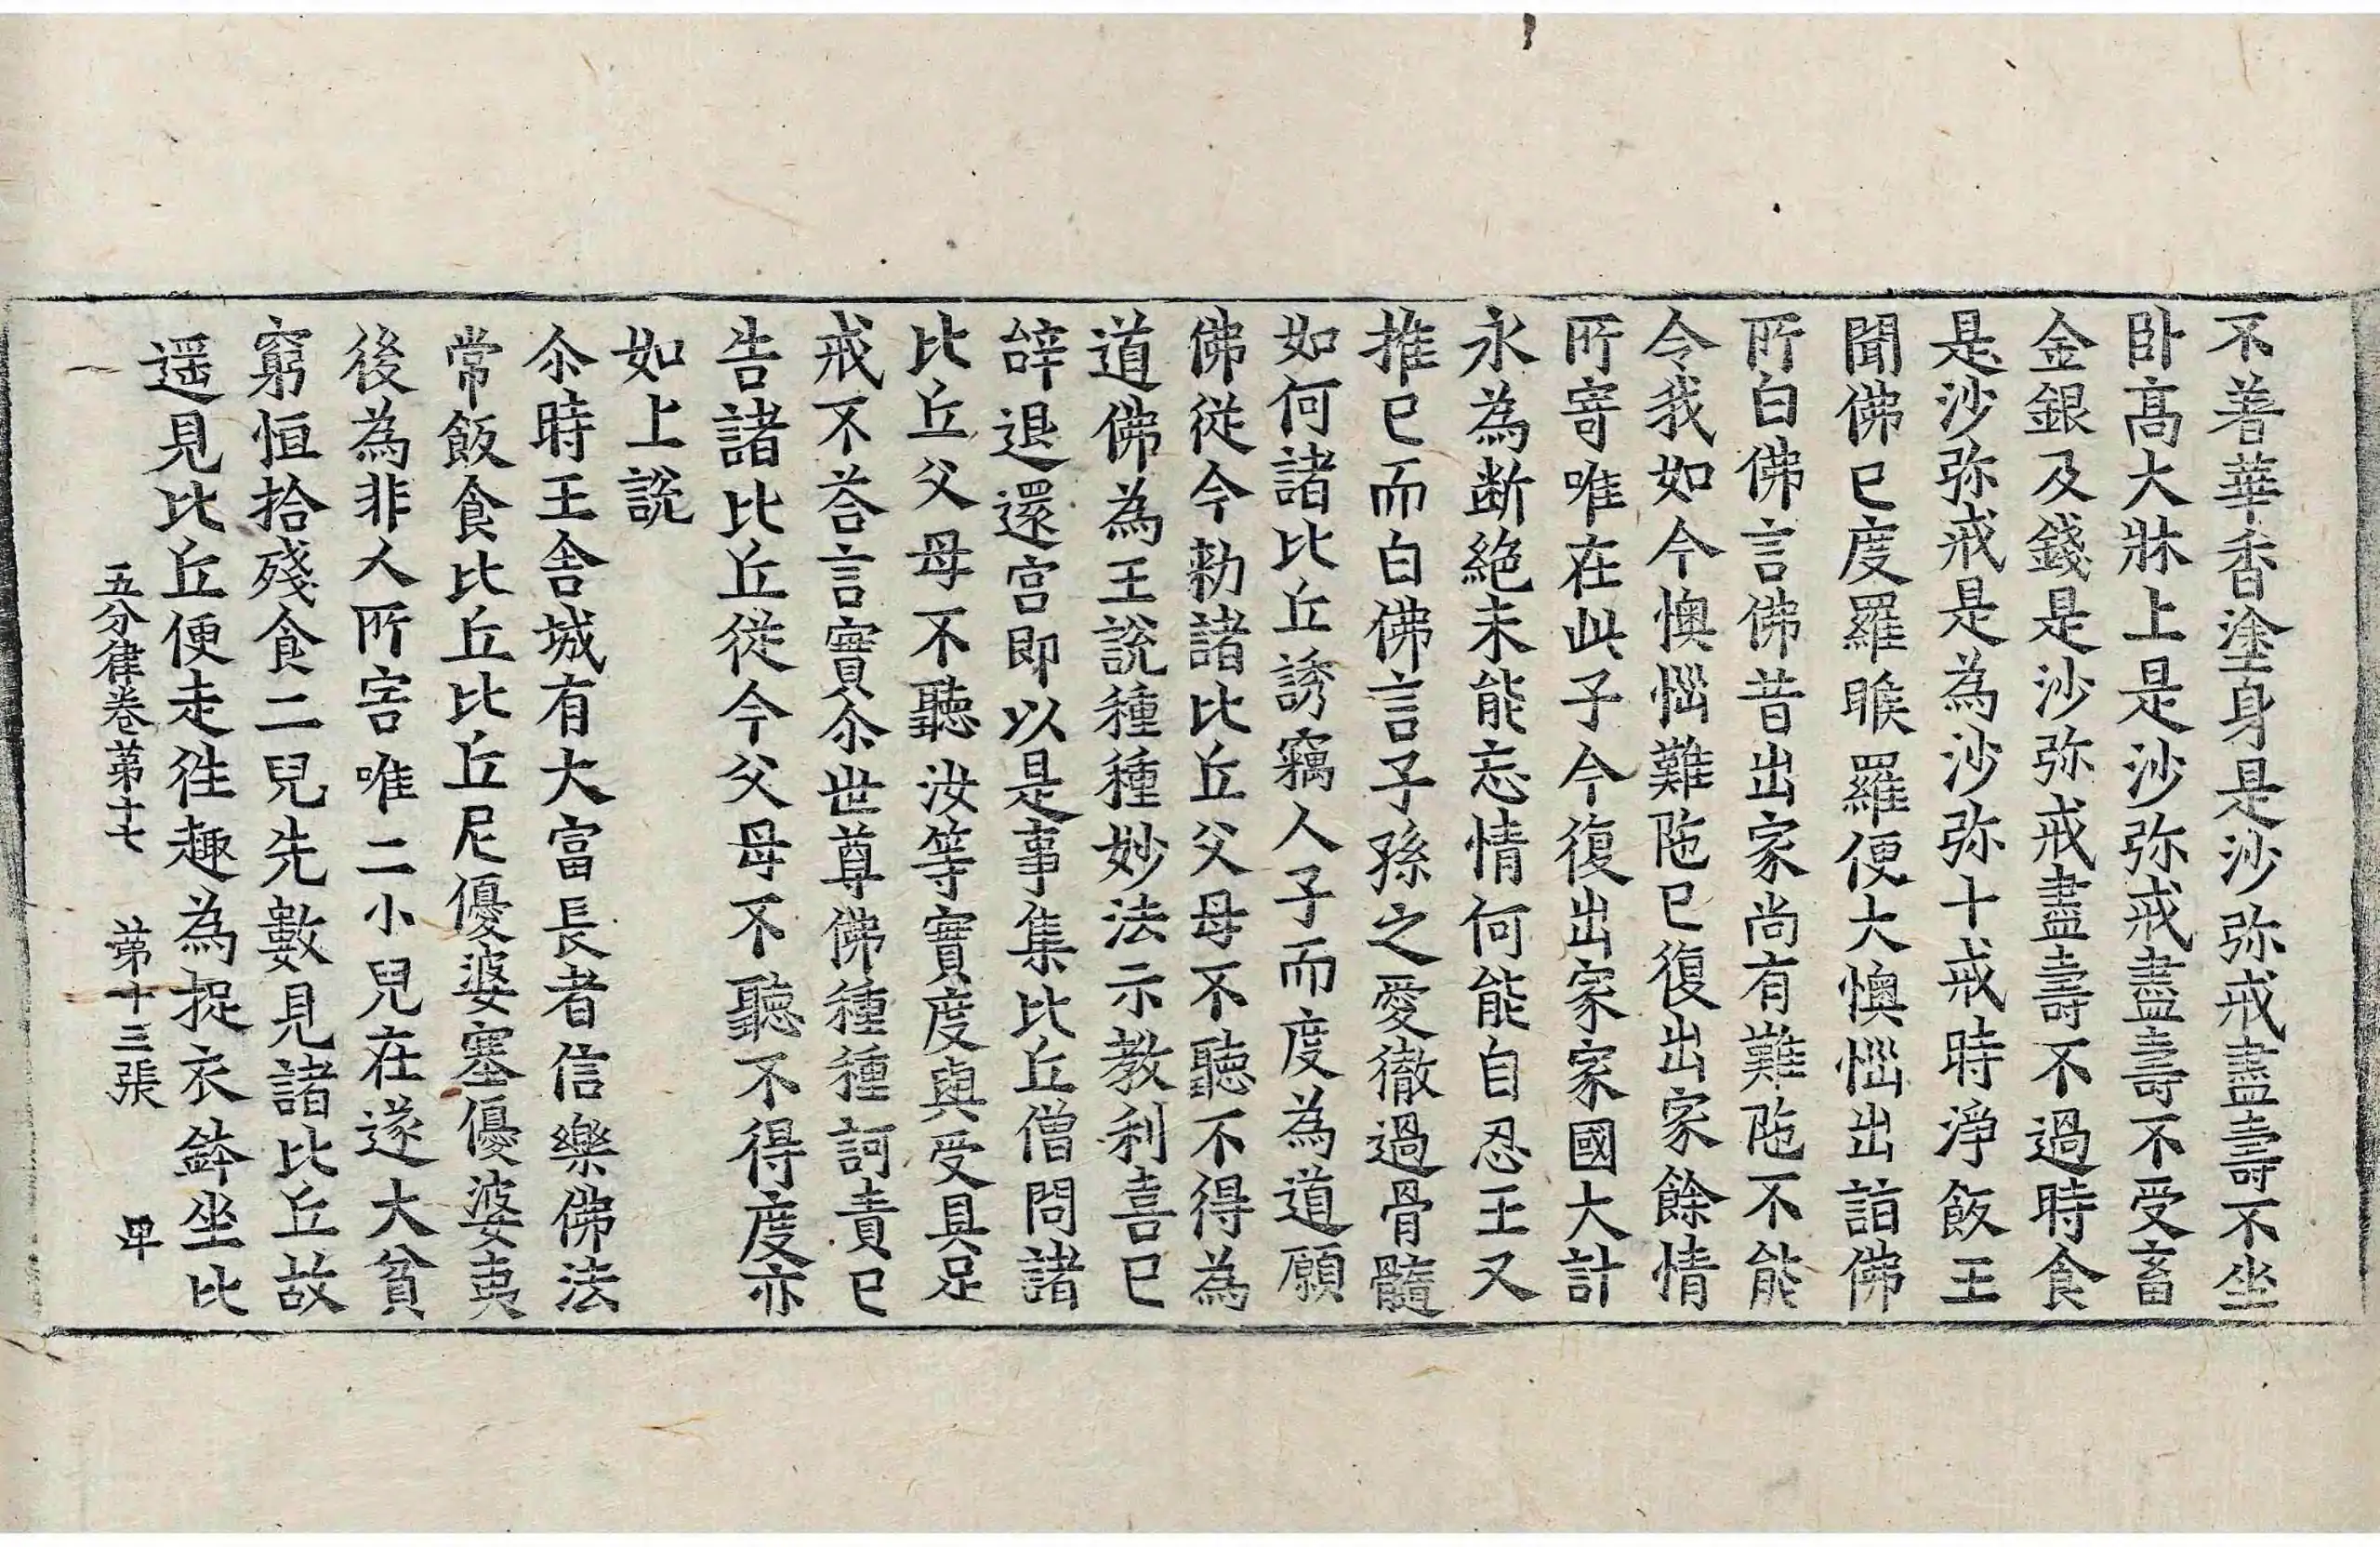 不著華香塗身是沙弥戒盡壽不坐
卧髙大牀上是沙弥戒盡壽不受畜
金銀及錢是沙弥戒盡壽不過時食
是沙弥戒是為沙弥十戒時淨飯王
聞佛已度羅睺羅便大懊惱出詣佛
所白佛言佛昔出家尚有難陁不能
令我如今懊惱難陁已復出家餘情
所寄唯在此子今復出家家國大計
永為断絕未能忘情何能自忍王又
推已而白佛言子孫之愛徹過骨髓
如何諸比丘誘竊人子而度為道願
佛從今勑諸比丘父母不聽不得為
道佛為王說種種妙法示教利喜已
辝退還宫即以是事集比丘僧問諸
比丘父母不聽汝等實度與受具足
戒不荅言實尒世尊佛種種訶責已
告諸比丘從今父母不聽不得度亦
如上說
尒時王舍城有大富長者信樂佛法
常飯食比丘比丘尼優婆塞優婆夷
後為非人所害唯二小兒在遂大貧
窮恒拾殘食二兒先數見諸比丘故
遥見比丘便走往趣為捉衣鉢坐比
五分律卷苐十七 苐十三張 卑